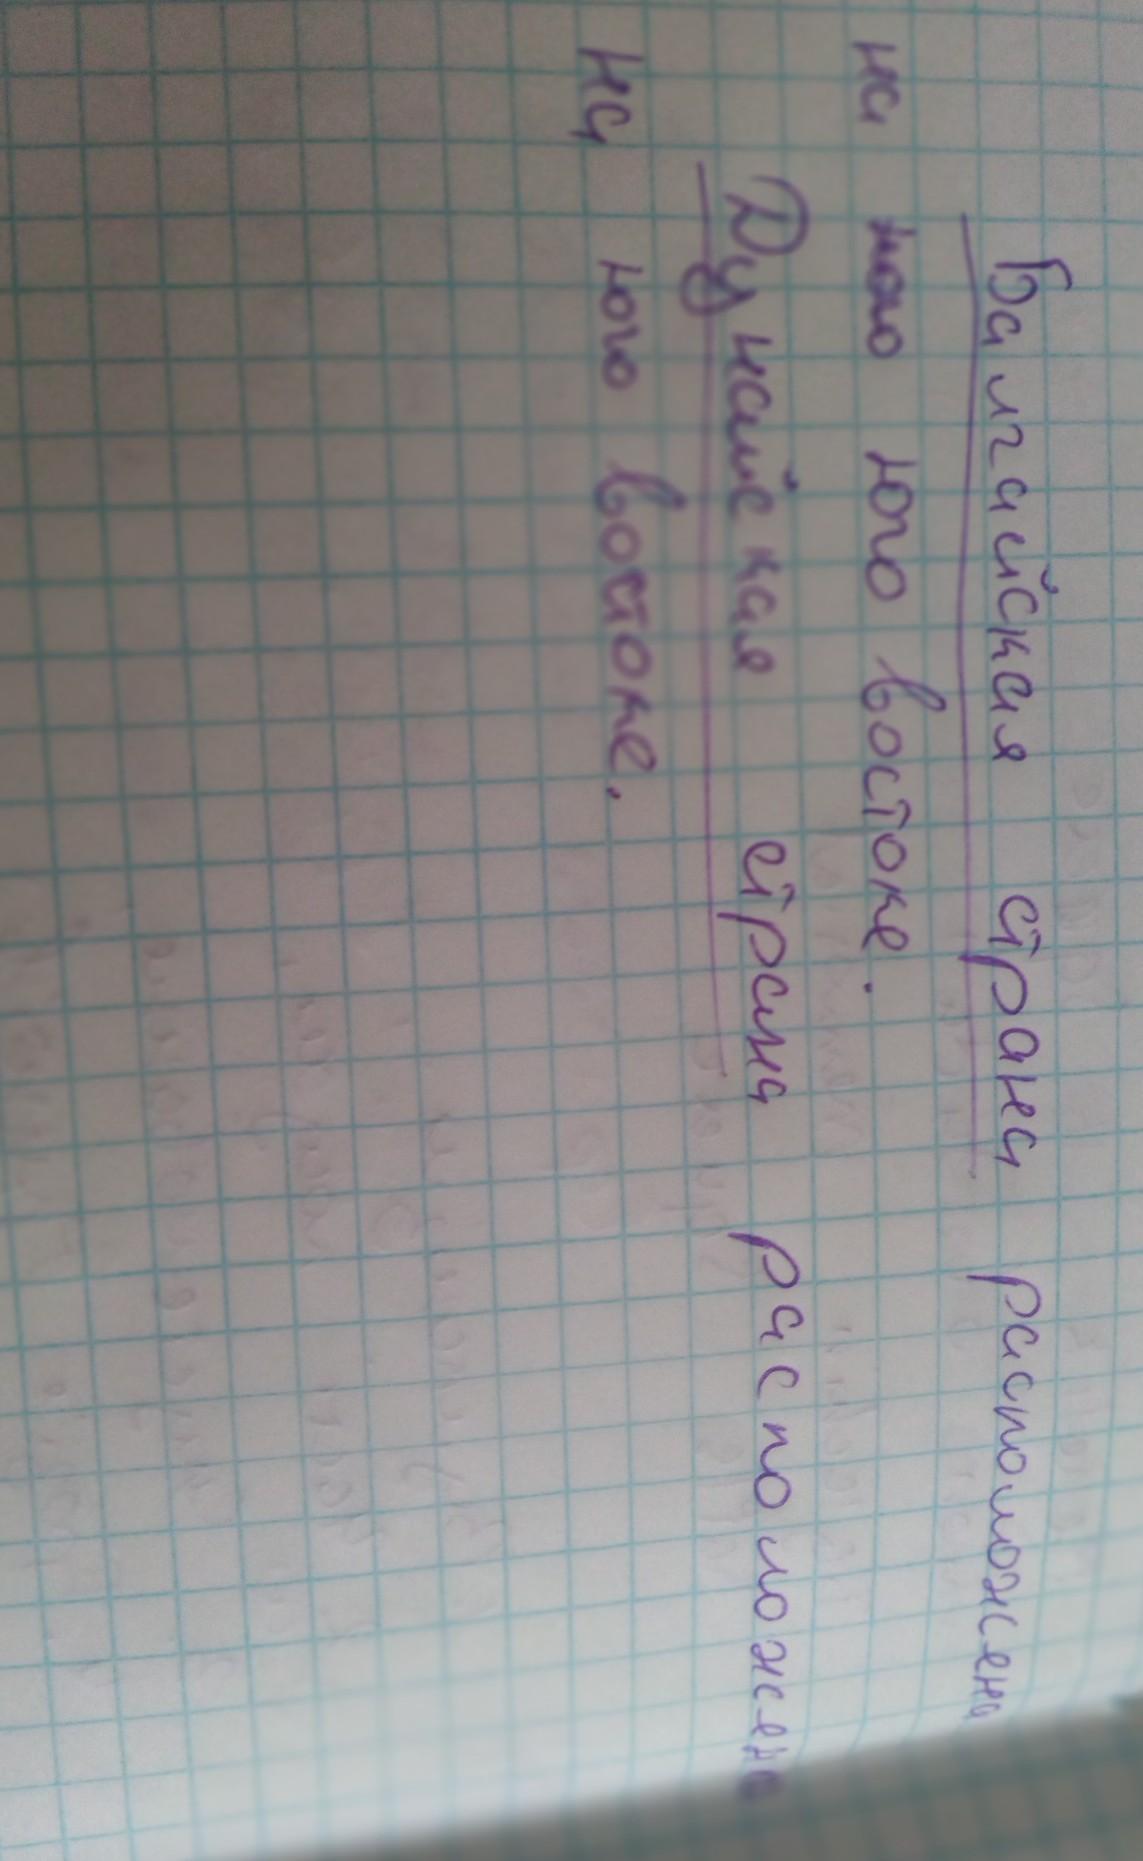 Балгайская страна расположена
на юго востоке.
Дунайская страна расположена
на юго востоке.